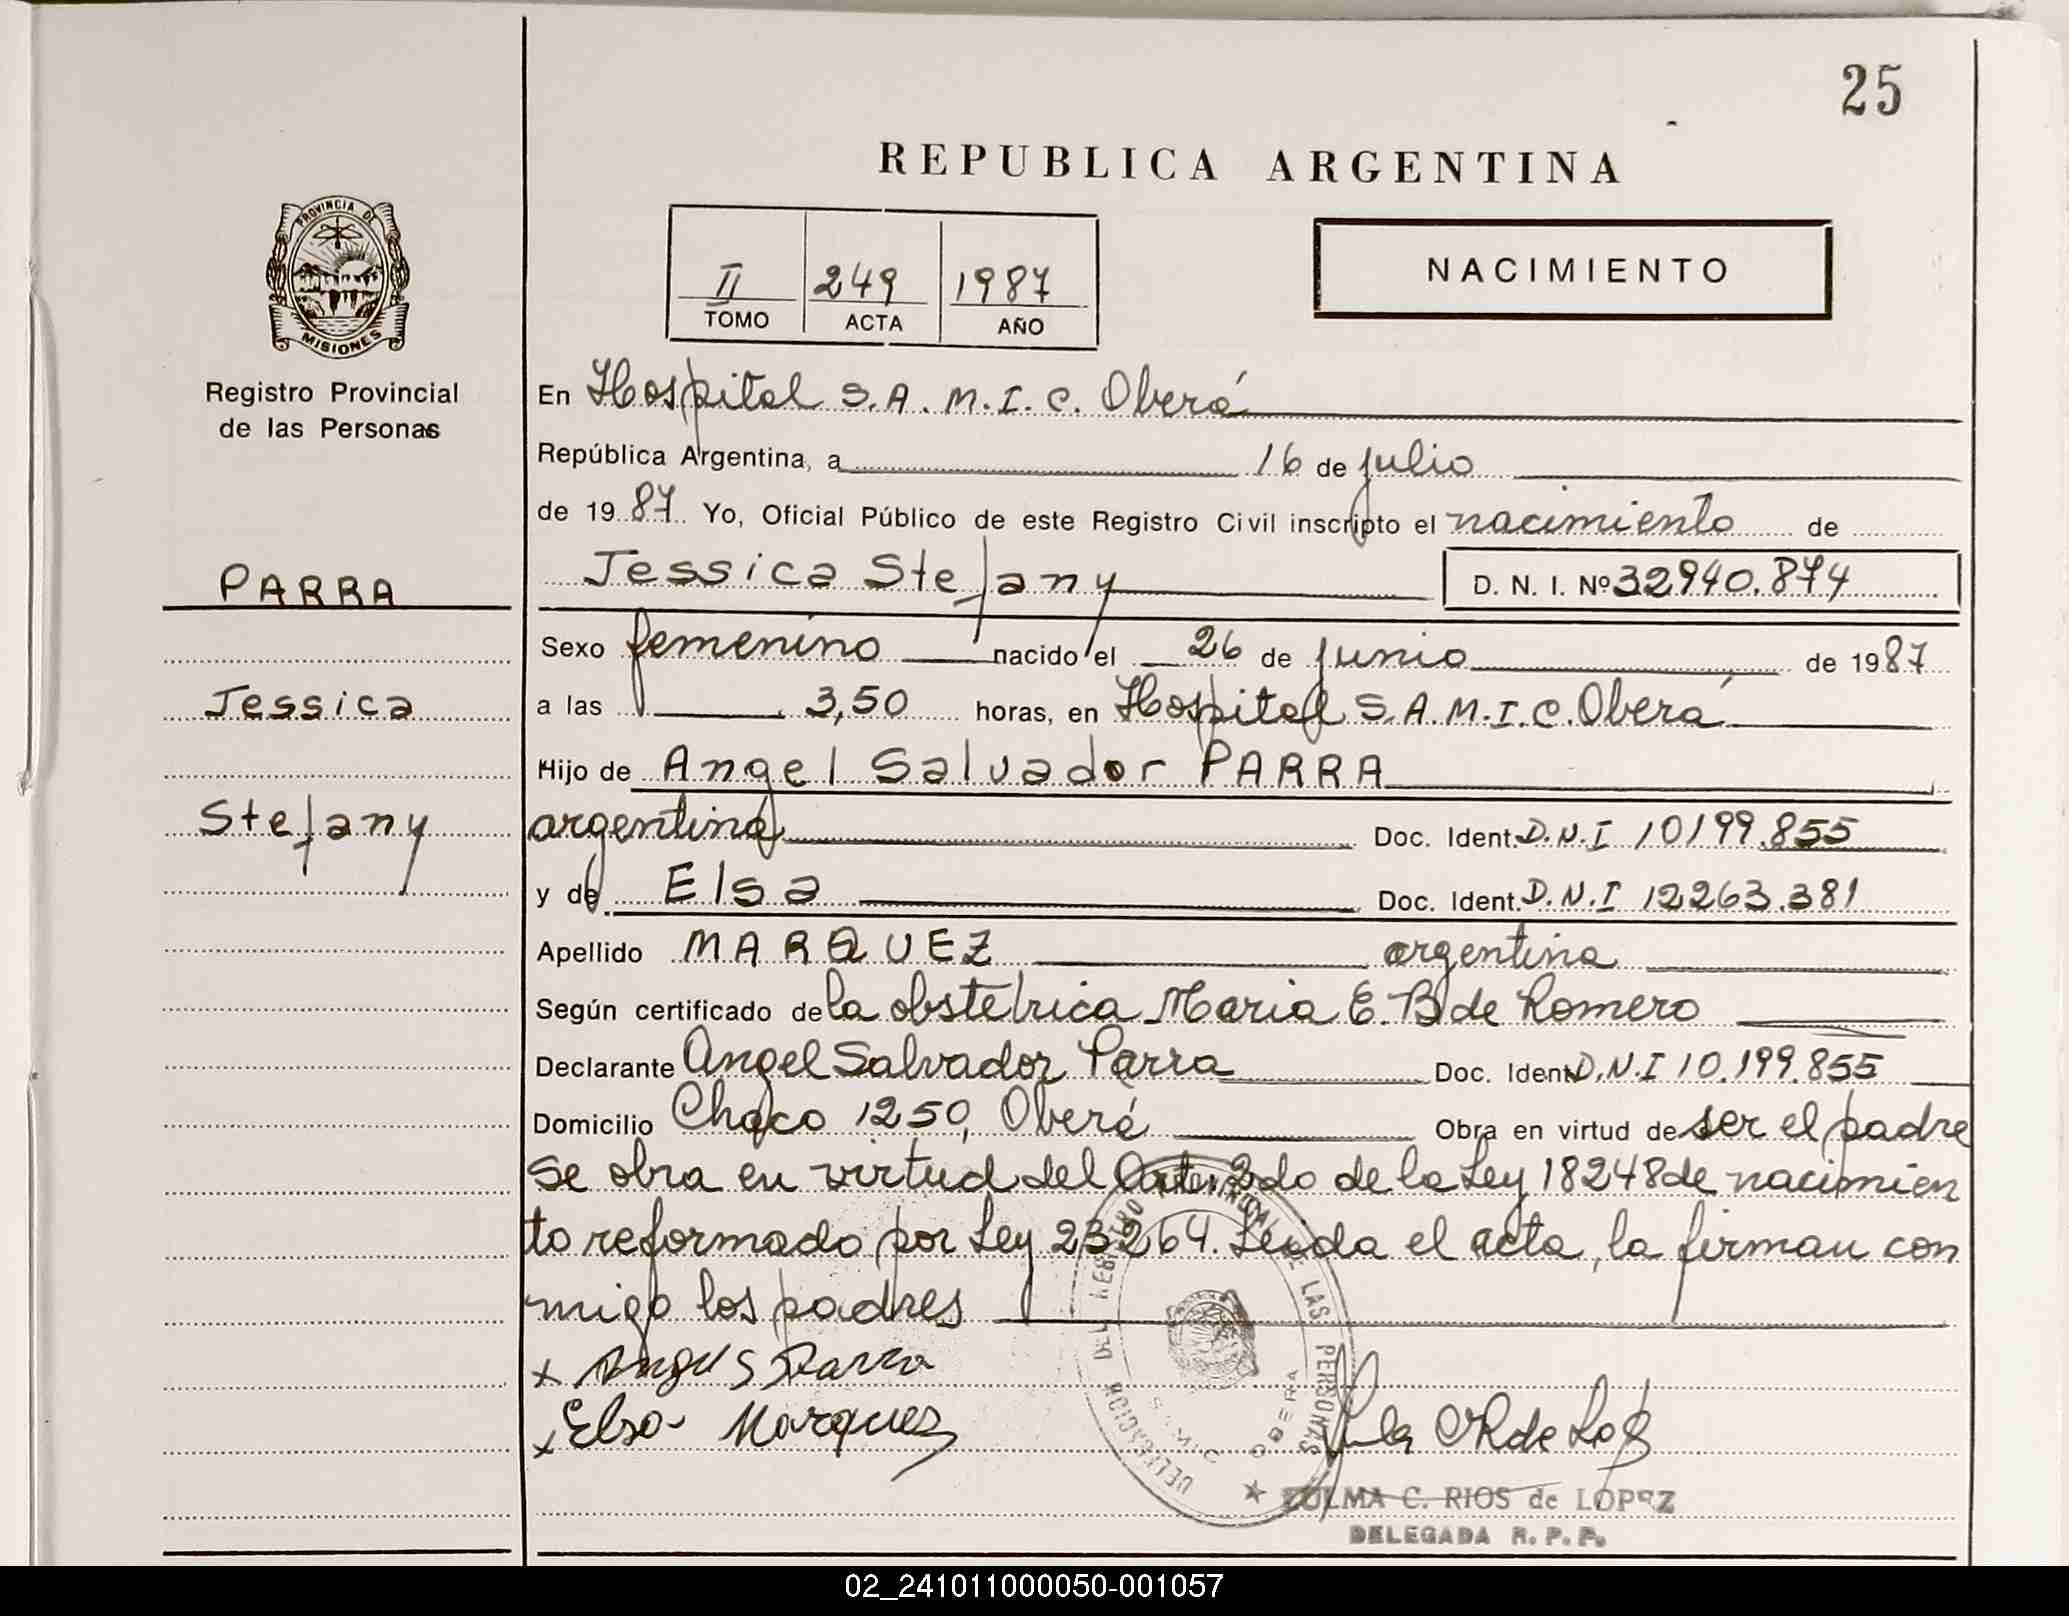 25
REPUBLICA ARGENTINA
PROVINCIA DE
MISIONES
II 249 1987
TOMO ACTA AÑO
NACIMIENTO
Registro Provincial
de las Personas
En Hospital S.A.M.I.C. Oberá
República Argentina, a 16 de julio
de 1987 Yo, Oficial Público de este Registro Civil inscripto el nacimiento de
PARRA
Jessica Stefany D. N. I. Nº 32940.874
Sexo femenino nacido el 26 de junio de 1987
Jessica
a las 3,50 horas, en Hospital S.A.M.I.C. Oberá
Hijo de Angel Salvador PARRA
Stefany
argentina Doc. Ident. D.N.I 10199.855
y de Elsa Doc. Ident. D.N.I 12263.381
Apellido MARQUEZ argentina
Según certificado de la obstetrica Maria E. B de Romero
Declarante Angel Salvador Parra Doc. Ident D.N.I 10.199.855
Domicilio Chaco 1250, Oberá Obra en virtud de ser el padre
se obra en virtud del 2do de la Ley 18248 de nacimien
to reformado por Ley 23264. Leida el acta, la firman con
migo los padres
x Angel S Parra
x Elsa Marquez
DELEGACION DEL REGISTRO PROVINCIAL DE LAS PERSONAS
OBERA
ZULMA C. RIOS de LOPEZ
DELEGADA R. P. P.
02_241011000050-001057